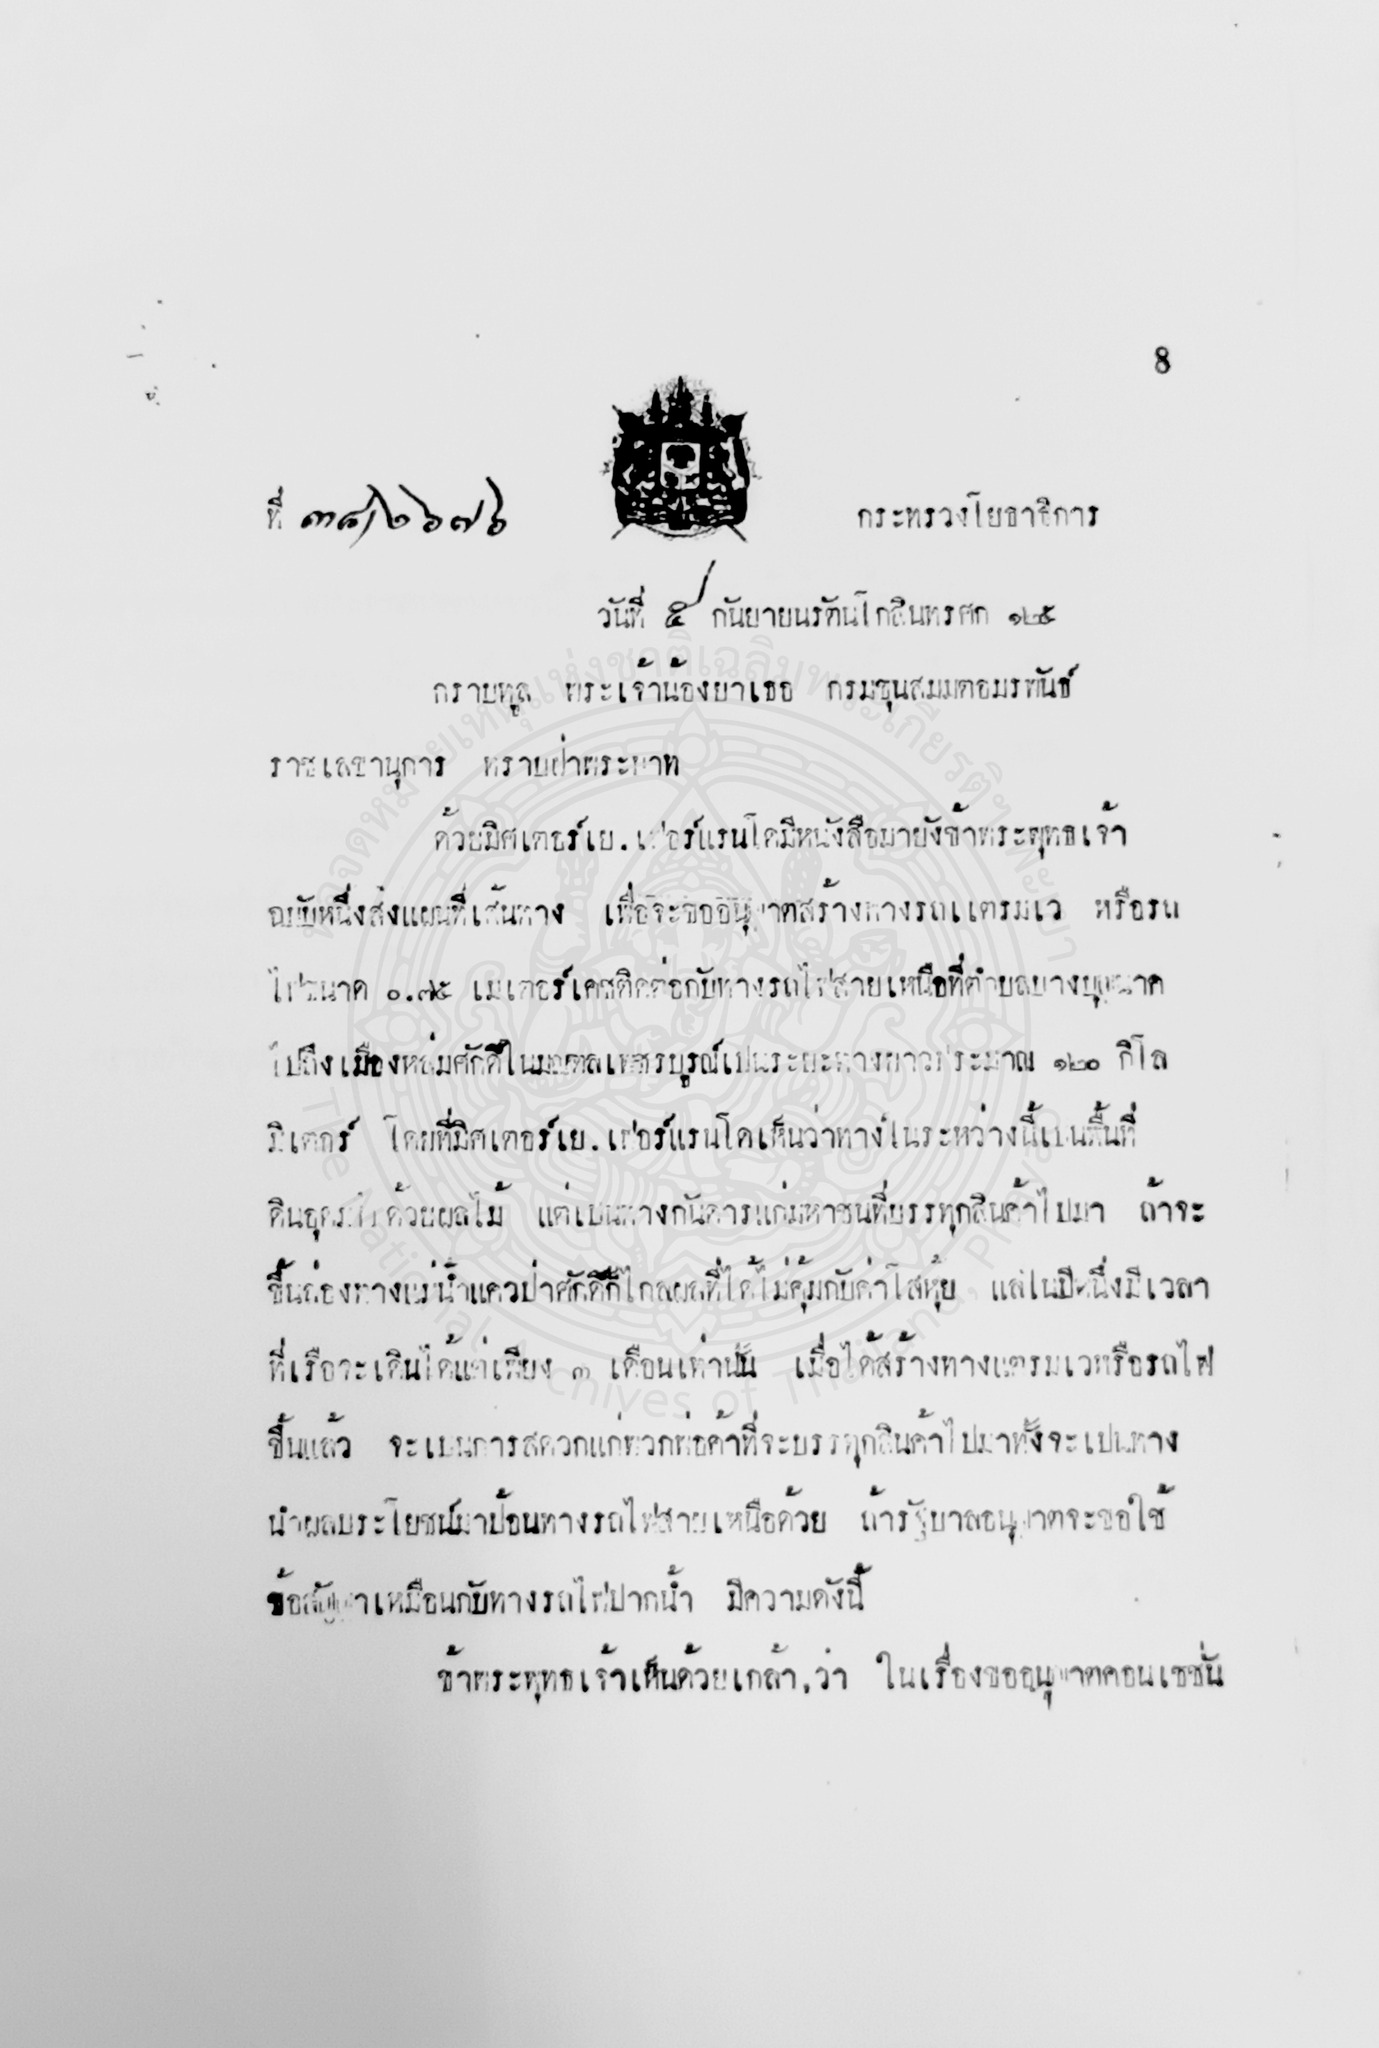 8
ที่ ๓๘/๒๖๗๖
กระทรวงโยธาธิการ
วันที่ ๕ กันยายนรัตนโกสินทรศก ๑๒๕
กราบทูล พระเจ้าน้องยาเธอ กรมขุนสมมตอมรพันธ์
ราชเลขานุการ ทราบฝ่าพระบาท
ด้วยมิศเตอร์เย.เฟอร์แรนโดมีหนังสือมายังข้าพระพุทธเจ้า
ฉบับหนึ่งส่งแผนที่เส้นทาง เพื่อจะขออนุญาตสร้างทางรถแตรมเว หรือรถ
ไฟขนาด ๐.๗๕ เมเตอร์เคชติดต่อกับทางรถไฟสายเหนือที่ตำบลบางบุญนาค
ไปถึงเมืองหล่มศักดิ์ในมณฑลเพชรบูรณ์เปนระยะทางยาวประมาณ ๑๒๐ กิโล
มิเตอร์ โดยที่มิศเตอร์เย.เฟอร์แรนโดเห็นว่าทางในระหว่างนี้เปนพื้นที่
ดินอุดมไปด้วยผลไม้ แต่เปนทางกันดารแก่มหาชนที่บรรทุกสินค้าไปมา ถ้าจะ
ขึ้นล่องทางแม่น้ำแควป่าศักดิ์ก็ไกลผลที่ได้ไม่คุ้มกับค่าโสหุ้ย แลในปีหนึ่งมีเวลา
ที่เรือจะเดินได้แต่เพียง ๓ เดือนเท่านั้น เมื่อได้สร้างทางแตรมเวหรือรถไฟ
ขึ้นแล้ว จะเปนการสดวกแก่พวกพ่อค้าที่จะบรรทุกสินค้าไปมาทั้งจะเปนทาง
นำผลประโยชน์มาป้อนทางรถไฟสายเหนือด้วย ถ้ารัฐบาลอนุญาตจะขอใช้
ข้อสัญญาเหมือนกับทางรถไฟปากน้ำ มีความดังนี้
ข้าพระพุทธเจ้าเห็นด้วยเกล้า,ว่า ในเรื่องขออนุญาตคอนเซชั่น
หอจดหมายเหตุแห่งชาติเฉลิมพระเกียรติฯ พะเยา
The National Archives of Thailand, Phayao